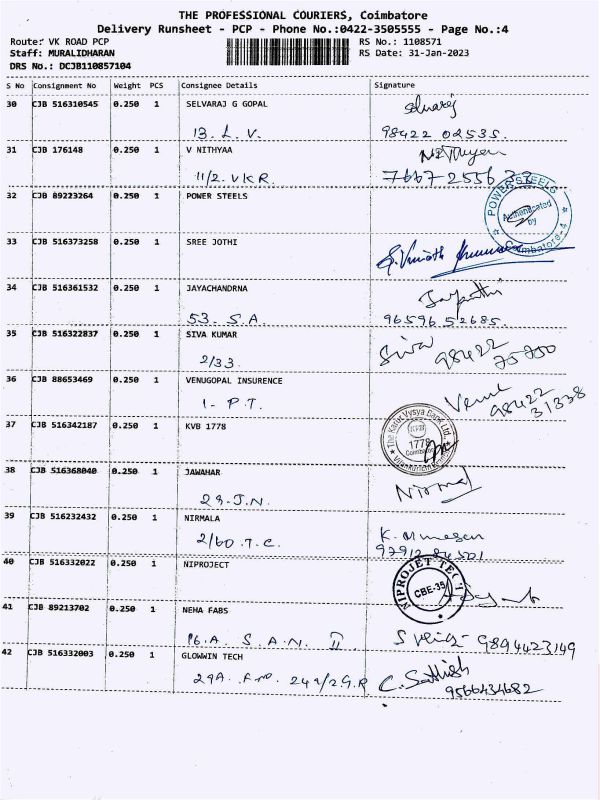 THE PROFESSIONAL COURIERS, Coimbatore
Delivery Runsheet - PCP - Phone No.:0422-3505555 - Page No.:4
Route: VK ROAD PCP RS No.: 1108571
Staff: MURALIDHARAN RS Date: 31-Jan-2023
DRS No.: DCJB110857104
S No Consignment No Weight PCS Consignee Details Signature
30 CJB 516310545 0.250 1 SELVARAJ G GOPAL Selvaraj
13. L. V. 98422 02535.
31 CJB 176148 0.250 1 V NITHYAA
11/2. V K R.
32 CJB 89223264 0.250 1 POWER STEELS
POWER STEELS Authenticated by Coimbatore-4
33 CJB 516373258 0.250 1 SREE JOTHI
34 CJB 516361532 0.250 1 JAYACHANDRNA
53. S. A. 96596 52685.
35 CJB 516322837 0.250 1 SIVA KUMAR Siva
2/33. 98422
36 CJB 88653469 0.250 1 VENUGOPAL INSURENCE
1- P. T. 98422 31338
37 CJB 516342187 0.250 1 KVB 1778
The Karur Vysya Bank Ltd. 1778
38 CJB 516368040 0.250 1 JAWAHAR Nirmal
29. J. N.
39 CJB 516232432 0.250 1 NIRMALA
2/60. T. C.
40 CJB 516332022 0.250 1 NIPROJECT
NIPROJET TEC CBE-35
41 CJB 89213702 0.250 1 NEHA FABS
16. A. S. A. N. II. 9894423149
42 CJB 516332003 0.250 1 GLOWWIN TECH
29A. C. Sathish
9566434682